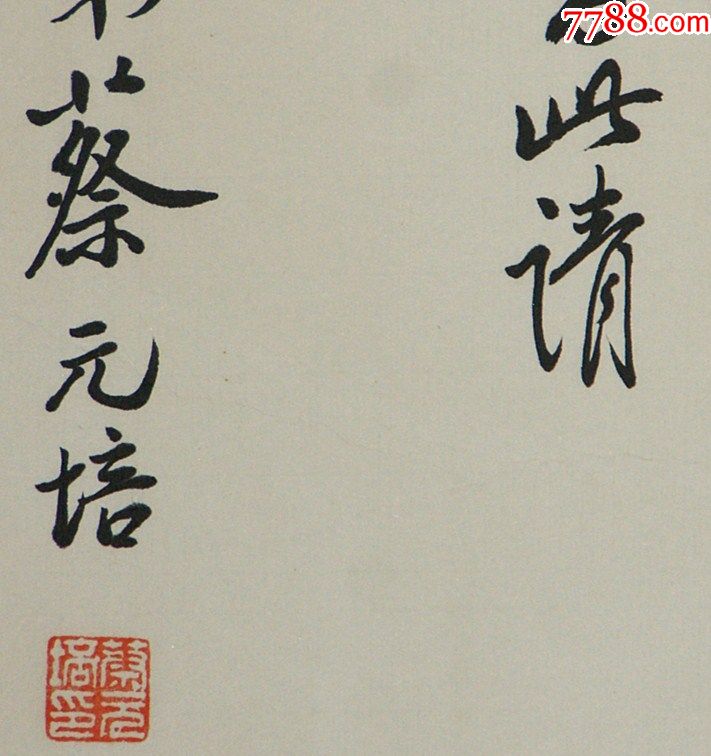 7788.com
此请
弟蔡元培
蔡元培印